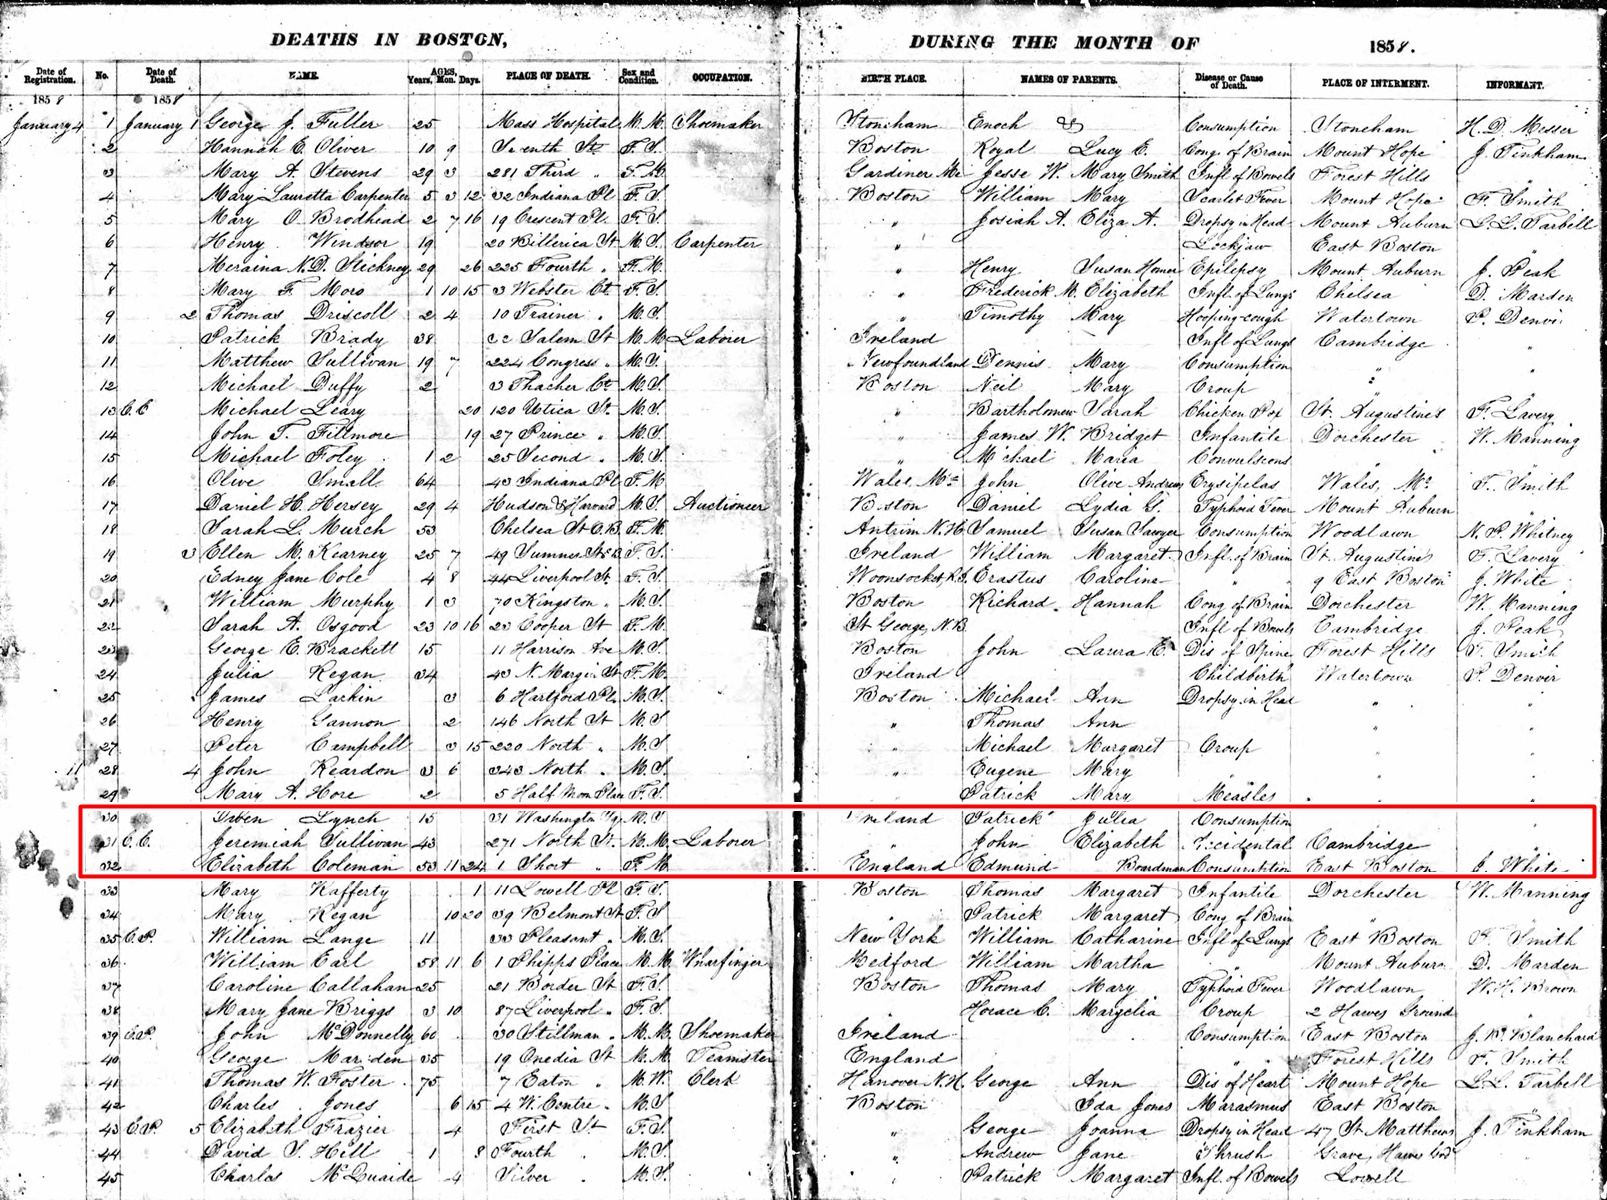 DEATHS IN BOSTON, DURING THE MONTH OF 1858.
Date of Registration. No. Date of Death. NAME. AGES, Years, Mon. Days. PLACE OF DEATH. Sex and Condition. OCCUPATION. BIRTH PLACE. NAMES OF PARENTS. Disease or Cause of Death. PLACE OF INTERMENT. INFORMANT.
1858 1858
January 4 1 January 1 George J. Fuller 25 Mass Hospital M. M. Shoemaker Stoneham Enoch & Consumption Stoneham H. D. Messer
2 Hannah E. Oliver 10 9 Seventh St F. S. Boston Royal Lucy E. Cong of Brain Mount Hope J. Tinkham
3 Mary A. Stevens 29 3 281 Third " F. M. Gardiner Me Jesse W. Mary Smith Infl. of Bowels Forest Hills "
4 Mary Lauretta Carpenter 5 3 12 32 Indiana Pl F. S. Boston William Mary Scarlet Fever Mount Hope F. Smith
5 Mary O. Brodhead 2 7 16 19 Crescent Pl. F. S. " Josiah A. Eliza A. Dropsy in Head Mount Auburn L. L. Tarbell
6 Henry Windsor 19 20 Billerica St M. S. Carpenter " Lockjaw East Boston "
7 N. D. Stickney 29 26 225 Fourth " F. M. " Henry Susan Homer Epilepsy Mount Auburn J. Peak
8 Mary F. Moro 1 10 15 3 Webster Ct. F. S. " Frederick M. Elizabeth Infl. of Lungs Chelsea D. Marden
9 2 Thomas Driscoll 2 4 10 Trainer " M. S. " Timothy Mary Hooping-cough Watertown P. Denvir
10 Patrick Brady 38 Salem St M. M. Laborer Ireland Infl of Lungs Cambridge "
11 Matthew Sullivan 19 7 224 Congress " M. S. Newfoundland Dennis Mary Consumption " "
12 Michael Duffy 2 3 Thacher Ct M. S. Boston Neil Mary Croup " "
13 C. C. Michael Leary 20 120 Utica St. M. S. " Bartholomew Sarah Chicken Pox St. Augustines F. Lavery
14 John T. Fillmore 19 27 Prince " M. S. " James W. Bridget Infantile Dorchester W. Manning
15 Michael Foley 1 2 25 Second " M. S. " Michael Maria Convulsions " "
16 Olive Small 64 43 Indiana Pl F. M. Wales, Me John Olive Andrews Erysipelas Wales, Me F. Smith
17 Daniel H. Hersey 29 4 Hudson & Harvard M. S. Auctioneer Boston Daniel Lydia G. Typhoid Fever Mount Auburn "
18 Sarah L. Murch 53 Chelsea St E. B. F. M. Antrim N. H. Samuel Susan Sawyer Consumption Woodlawn N. P. Whitney
19 3 Ellen M. Kearney 25 7 49 Summer St F. S. Ireland William Margaret Infl. of Brain St. Augustines F. Lavery
20 Edney Jane Cole 4 8 44 Liverpool St. F. S. Woonsocket, R. I. Erastus Caroline " " 9 East Boston J. White
21 William Murphy 1 3 70 Kingston " M. S. Boston Richard Hannah Cong of Brain Dorchester W. Manning
22 Sarah A. Osgood 23 10 16 23 Cooper St F. M. St George, N. B. Infl of Bowels Cambridge J. Peak
23 George E. Brackett 15 11 Harrison Ave M. S. Boston John Laura E. Dis of Spine Forest Hills F. Smith
24 Julia Regan 34 43 N. Margin St F. M. Ireland Childbirth Watertown P. Denvir
25 James Larkin 3 6 Hartford Pl. M. S. Boston Michael Ann Dropsy in Head " "
26 Henry Gannon 2 146 North St M. S. " Thomas Ann " "
27 Peter Campbell 3 15 220 North " M. S. " Michael Margaret Croup " "
" 28 4 John Reardon 3 6 343 North " M. S. " Eugene Mary " " "
29 Mary A. Hore 2 5 Half Moon Place F. S. " Patrick Mary Measles " "
30 Lynch 15 31 Washington M. S. Ireland Patrick Julia Consumption " "
31 C. C. Jeremiah Sullivan 43 271 North St. M. M. Laborer " John Elizabeth Accidental Cambridge "
32 Elizabeth Coleman 53 11 24 1 Short " F. M. England Edmund Boardman Consumption East Boston J. White
33 Mary Rafferty 1 11 Lowell Pl F. S. Boston Thomas Margaret Infantile Dorchester W. Manning
34 Mary Regan 10 20 39 Belmont St F. S. " Patrick Margaret Cong of Brain " "
35 C. P. William Lange 11 33 Pleasant " M. S. New York William Catharine Infl of Lungs East Boston F. Smith
36 William Earl 58 11 6 1 Phipps Place M. M. Wharfinger Medford William Martha " Mount Auburn D. Marden
37 Caroline Callahan 25 21 Border St F. S. Boston Thomas Mary Typhoid Fever Woodlawn W. H. Brown
38 Mary Jane Briggs 3 10 87 Liverpool " F. S. " Horace C. Margelia Croup 2 Hawes Ground "
39 C. P. John McDonnelly 60 30 Stillman " M. M. Shoemaker Ireland Consumption East Boston J. W. Blanchard
40 George Mariden 35 19 Oneida St M. M. Teamster England " " Forest Hills F. Smith
41 Thomas W. Foster 75 7 Eaton " M. W. Clerk Hanover N. H. George Ann Dis of Heart Mount Hope L. L. Tarbell
42 Charles Jones 6 15 4 W. Centre " M. S. Boston Ida Jones Marasmus East Boston "
43 C. P. 5 Elizabeth Frazier 4 First St F. S. " George Joanna Dropsy in Head 47 St Matthews J. Tinkham
44 David S. Hill 1 8 Fourth " M. S. " Andrew Jane Thrush Grave, Hawes Grd "
45 Charles McQuaide 4 Silver " M. S. " Patrick Margaret Infl. of Bowels Lowell